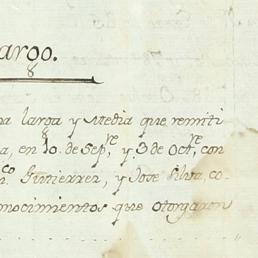 argo.
na larga y Media que remiti
a, en 10. de Sepᵗᵉ y 3 de Octᵉ, con
n.ᶜᵒ Gutierrez, y Jose Silva, co-
nocimientos que otorgaron